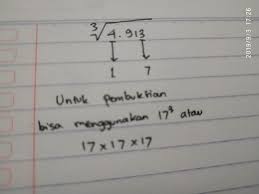 ∛4.913
1 7
Untuk pembuktian
bisa menggunakan 17³ atau
17 x 17 x 17
2019/9/3 17:26